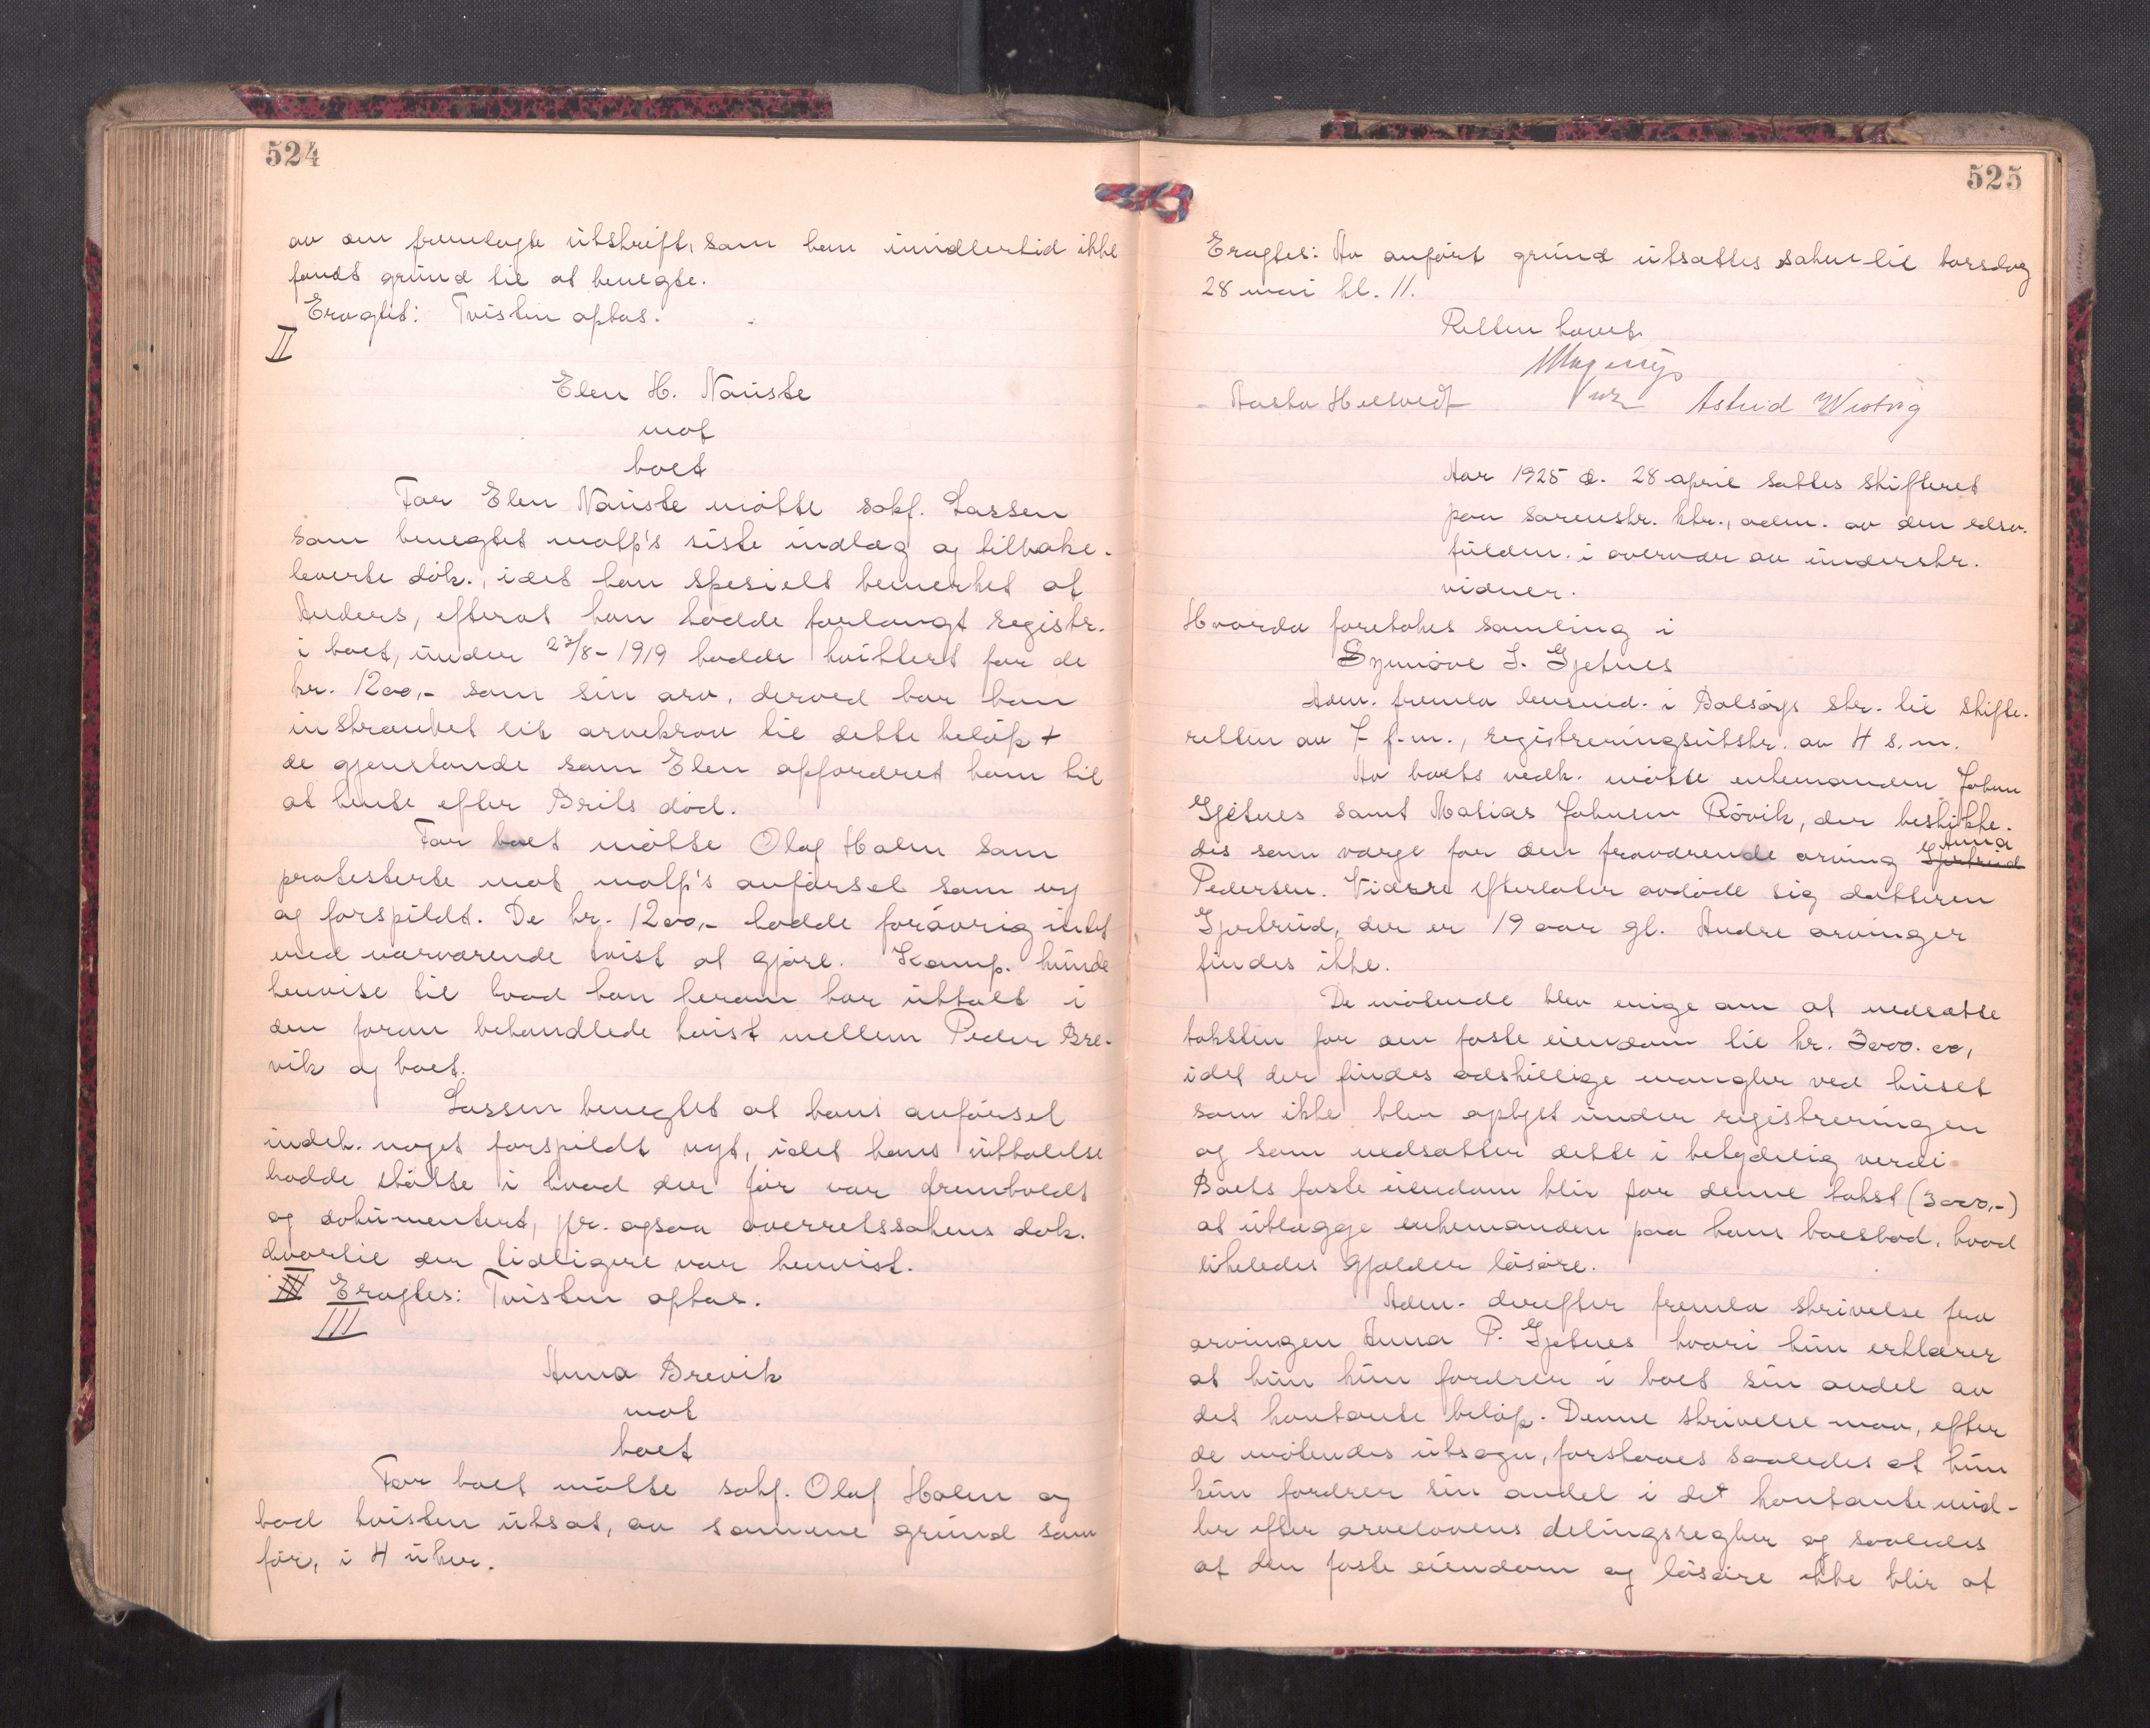 524
av den fremlagte utskrift, som han imidlertid ikke
fandt grund til at benegte.
Eragtet: Tvisten optas.
II
Elen H. Nauste
mot
boet
For Elen Nauste møtte sakf. Lassen
som benegtet motp's siste indlæg og tilbake-
leverte dok., idet han spesielt bemerket at
Anders, efterat han hadde forlangt registr.
i boet, under 27/8-1919 hadde kvittert for de
kr. 1200,- som sin arv, derved har han
inskrænket sit arvekrav til dette beløp +
de gjenstande som Elen opfordret ham til
at hente efter Brits død.
For boet møtte Olaf Holm som
protesterte mot motp's anførsel som ny
og forspildt. De kr. 1200,- hadde forøvrig intet
med nærværende tvist at gjøre. Komp. kunde
henvise til hvad han herom har uttalt i
den foran behandlede tvist mellem Peder Bre-
vik og boet.
Lassen benegtet at hans anførsel
indeh. noget forspildt nyt, idet hans uttalelse
hadde støtte i hvad der før var fremholdt
og dokumentert, jfr. ogsaa overretssakens dok.
hvortil der tidligere var henvist.
Eragtes: Tvisten optas.
III
Anna Brevik
mot
boet
For boet møtte sakf. Olaf Holm og
bad tvisten utsat, av samme grund som
før, i 4 uker.
525
Eragtes: Av anført grund utsattes saken til torsdag
28 mai kl. 11.
Retten hævet.
Astrid
Aar 1925 d. 28 april sattes skifteret
paa sorenskr. ktr., adm. av den edsv.
fuldm. i overvær av underskr.
vidner.
Hvorda foretokes samling i
Synnøve J. Gjetnes
Adm. fremla lensmd. i Bolsøys skr. til skifte-
retten av 7 f.m., registreringsutskr. av 4 s.m.
Av boets vedk. møtte enkemanden Johan
Gjetnes samt Matias Johnsen Røvik, der beskikke-
des som værge for den fraværende arving Gjertrud Anna
Pedersen. Videre efterlater avdøde sig datteren
Gjertrud, der er 19 aar gl. Andre arvinger
findes ikke.
De møtende blev enige om at nedsætte
taksten for den faste eiendom til kr. 3000.00,
idet der findes adskillige mangler ved huset
som ikke blev oplyst under registreringen
og som nedsætter dette i betydelig verdi.
Boets faste eiendom blir for denne takst (3000,-)
at utlægge enkemanden paa hans boeslod, hvad
likeledes gjælder løsøre.
Adm. derefter fremla skrivelse fra
arvingen Anna P. Gjetnes hvori hun erklærer
at hun kun fordrer i boet sin andel av
det kontante beløp. Denne skrivelse maa, efter
de møtendes utsagn, forstaaes saaledes at hun
kun fordrer sin andel i det kontante mid-
ler efter arvelovens delingsregler og saaledes
at den faste eiendom og løsøre ikke blir at